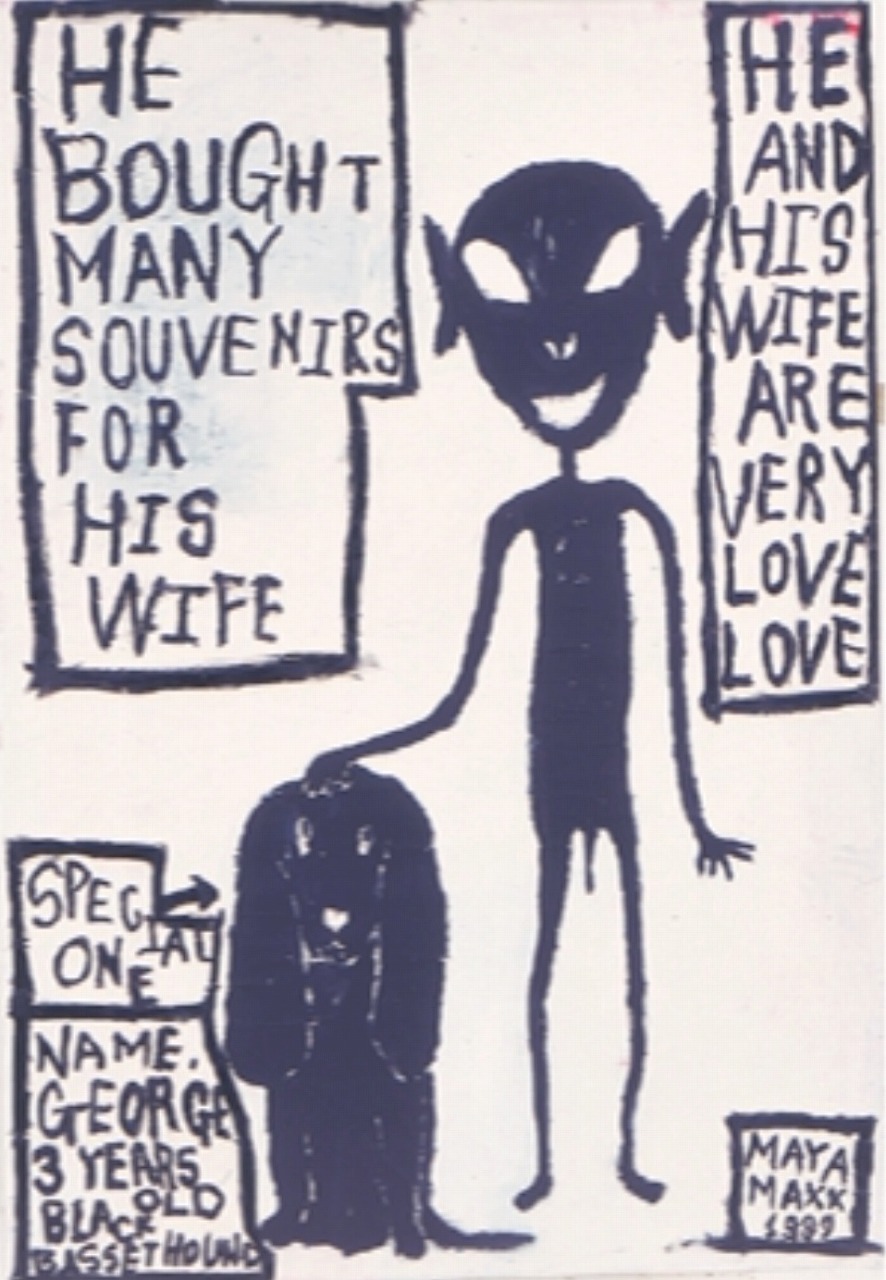 HE
BOUGHT
MANY
SOUVENIRS
FOR
HIS
WIFE
HE
AND
HIS
WIFE
ARE
VERY
LOVE
LOVE
SPECIAL
ONE
NAME.
GEORGE
3 YEARS
OLD
BLACK
BASSET HOUND
MAYA
MAXX